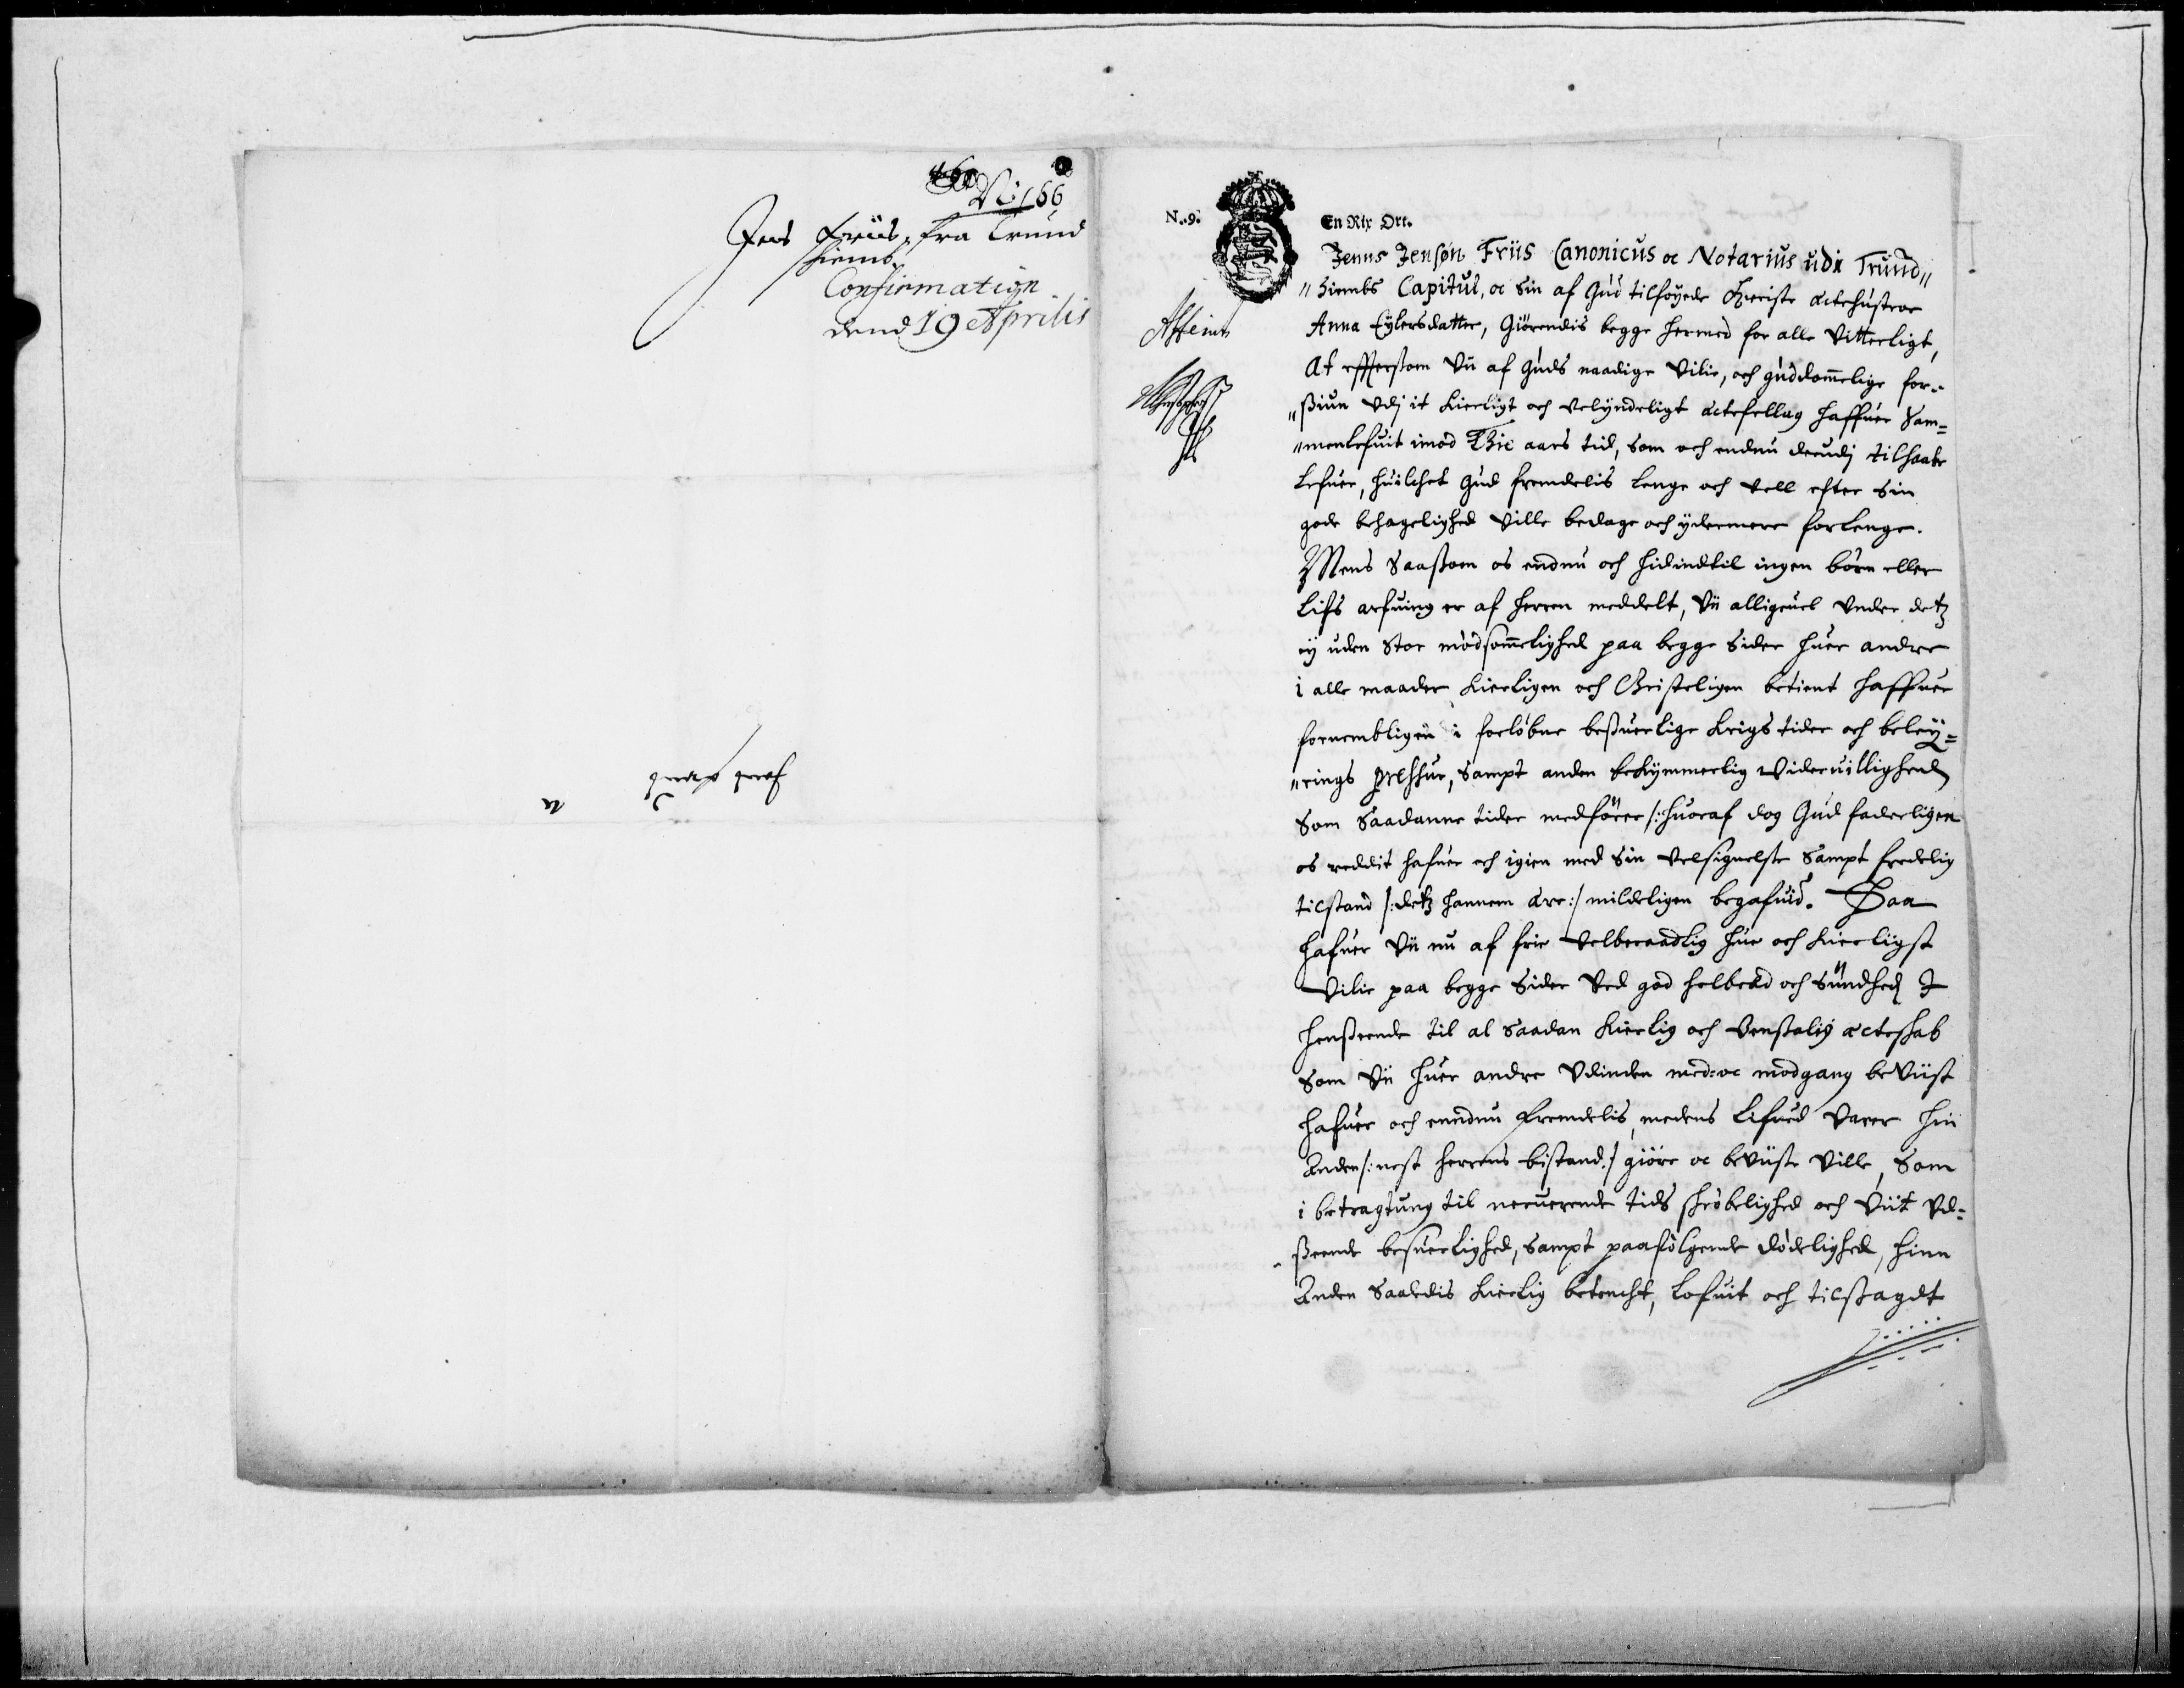 No: 156
Jens Friis, fra Trund
hiems
Confirmation
dend 19 Aprilis
N. 9.
En Rix Ort.
Jenns Jensøn Friis Canonicus oc Notarius udi Trund„
„hiembs Capitul, oc Sin af Gud tilføyede Kieriste ectehustroe
Anna Eylersdatter, Giörendis begge hermed for alle Vitterligt,
At effterssom Vii af Guds naadige Vilie, och guddommelige for„
„ssiun Vdj it Kierligt och velyndeligt ectefellag haffuer Sam=
„menlefuit imod Thie aars tid, Som och endnu derudj tilhaabe
Lefuer, huilchet Gud fremdelis lenge och vell efter Sin
gode behagelighed Ville bedage och ydermere forlenge.
Mens Saassom os endnu och hidindtil ingen börn eller
Lifs arfuing er af herren meddelt, Vii alligeuel Under detz
ey uden Stor mödsommelighed paa begge Sider huer andre
i alle maader Kierligen och Christeligen betient haffuer
fornembligen i forlöbne beßuerlige Krigs tider och beley=
„rings pressur, Sampt anden bekymmerlig Videruillighed
Som Saadanne tider medförer /: huoraf dog Gud faderligen
os reddit hafuer och igien med Sin Velsignelse Sampt fredelig
tilstand /: detz hannem ære :/ mildeligen begafuid. Daa
hafuer Vii nu af frie Velberaadlig hue och Kierligst
Vilie paa begge Sider Ved god helbred och Sundhed I
henseende til al Saadan Kierlig och Venssalig ecteskab
Som Vii huer andre Vdinden med= oc modgang beViist
hafuer och enndnu fremdelis, medens Lifued Varer hin
Anden /: nest herrens bistand :/ giöre oc beViise Ville, Som
i betragtung til neruerende tids skröbelighed och Viit Vd=
seende besuerlighed, Sampt paafölgende dödelighed, hinn
Anden Saaledis Kierlig betencht, Lofuit och tilssagdt